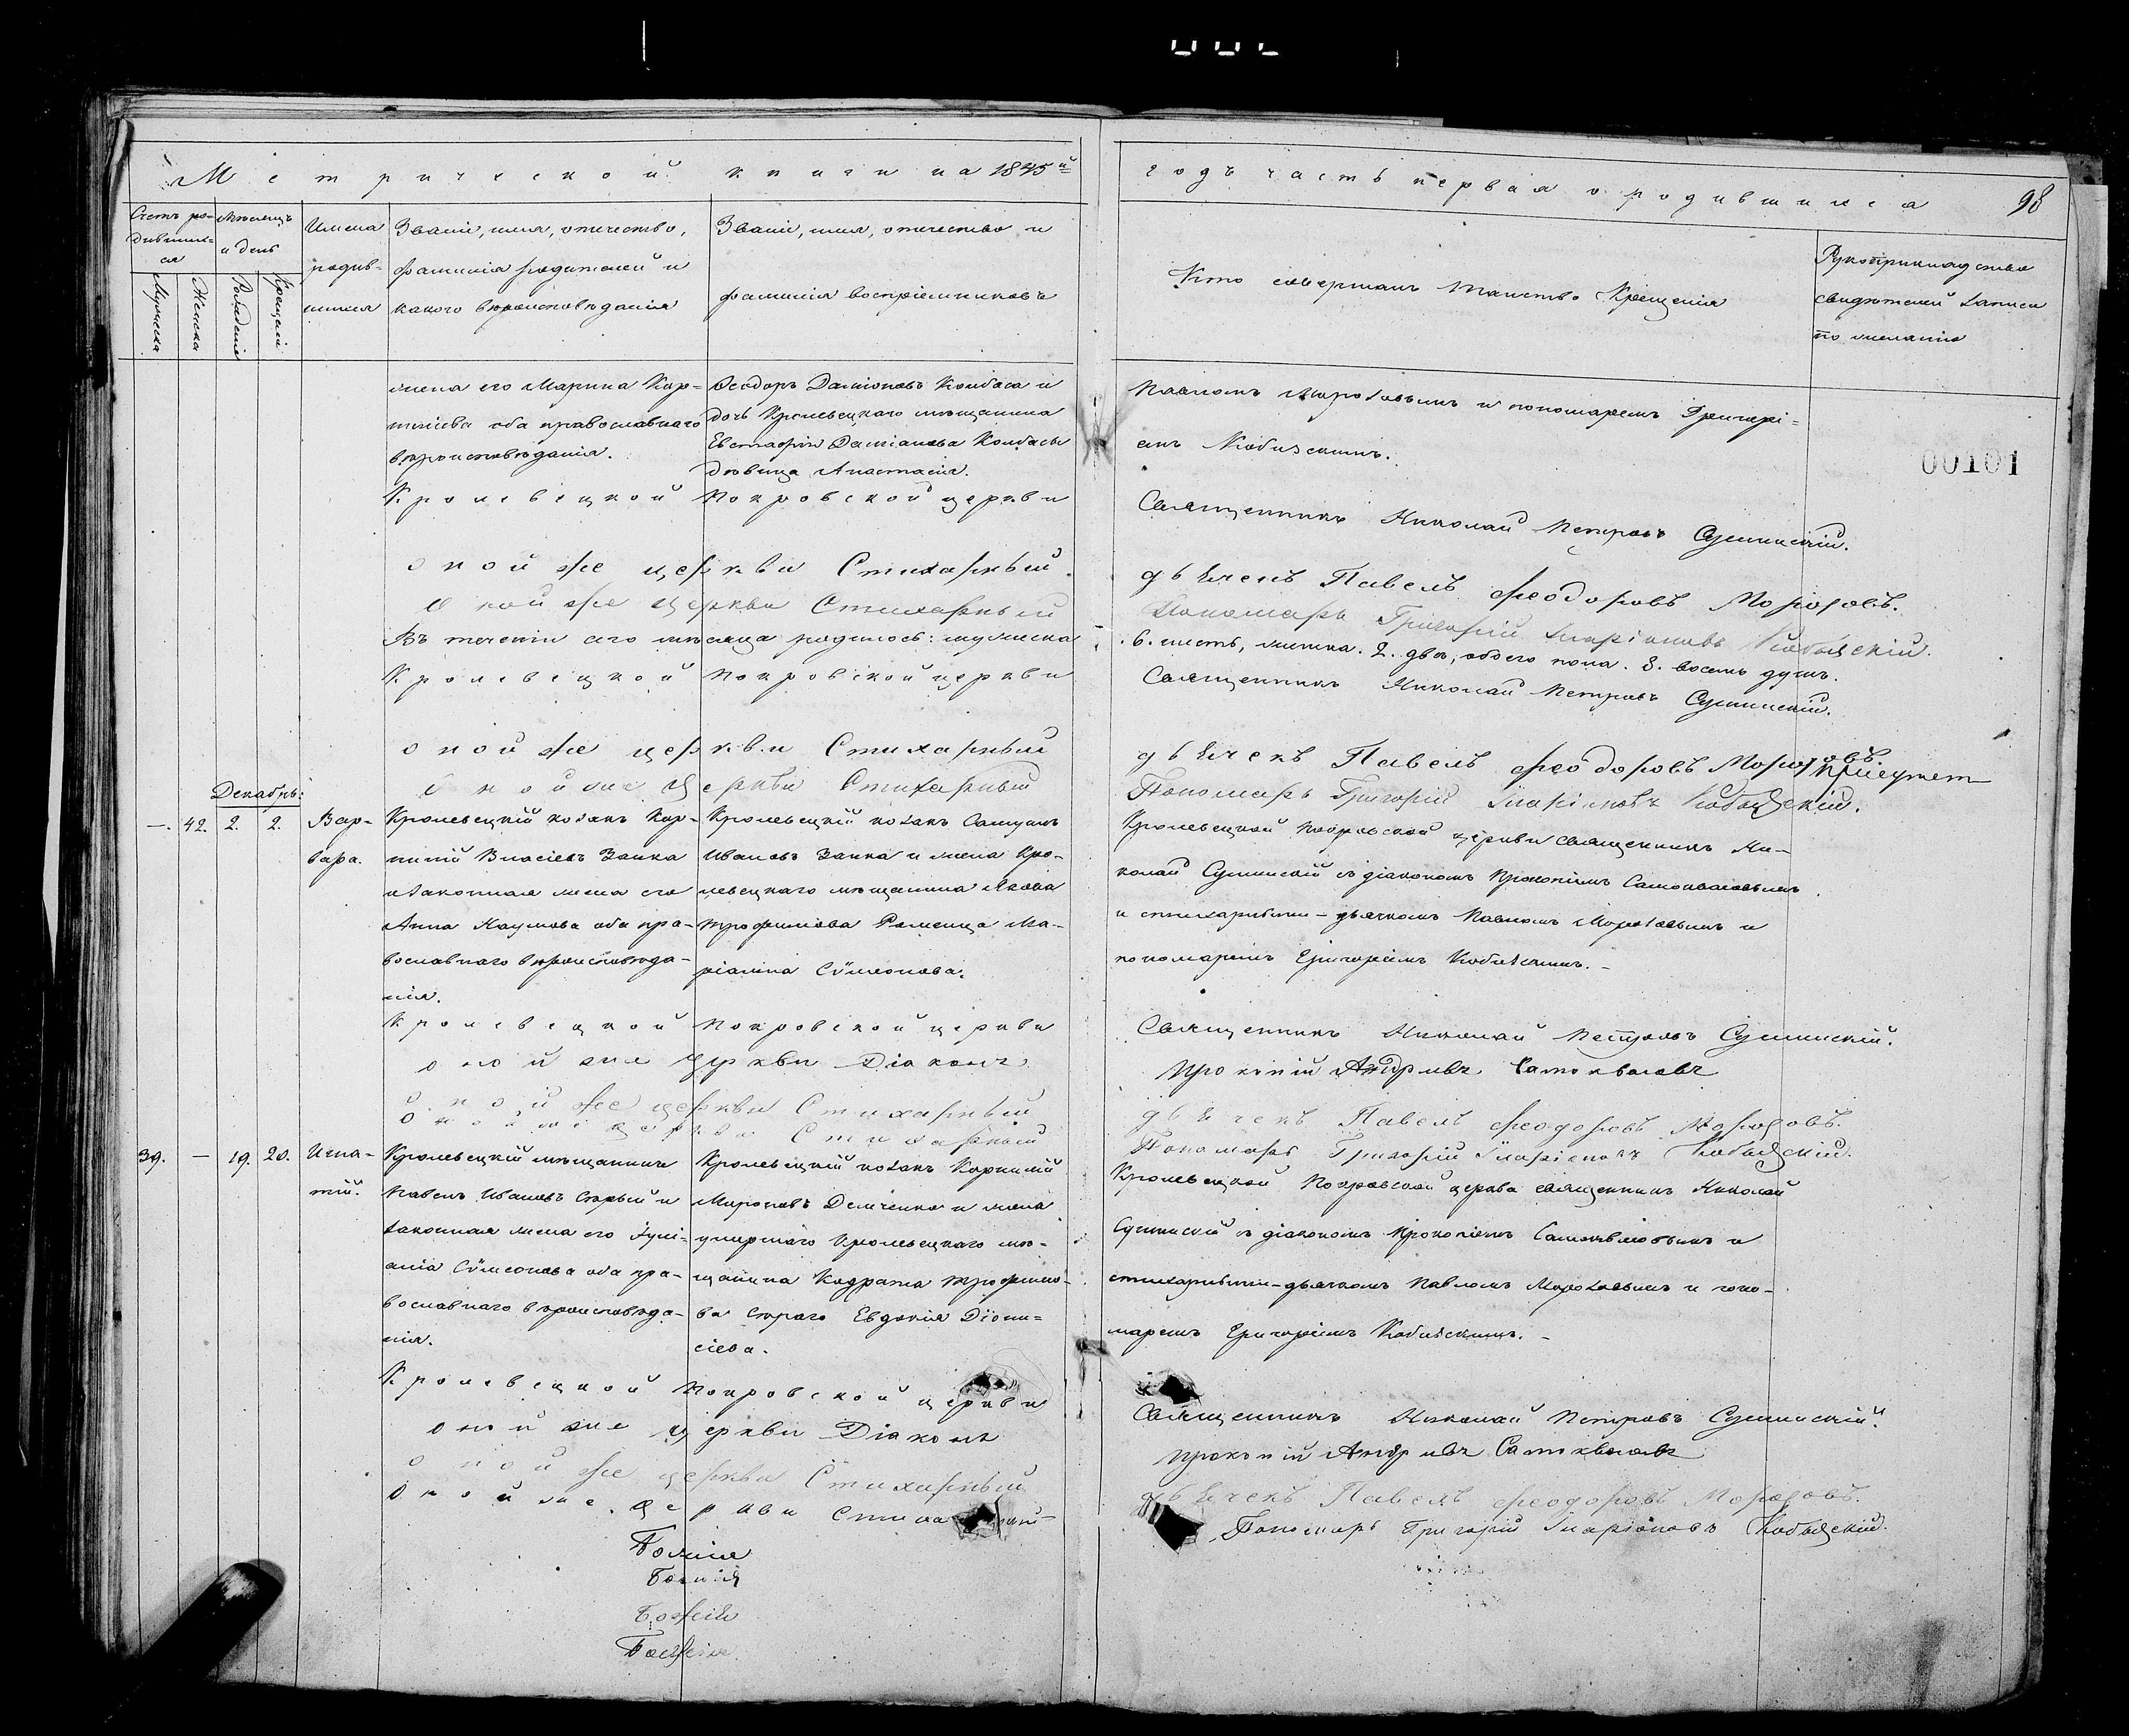 Метрической книги на 1845й
годъ часть первая о родившихся
98
Счетъ ро-
дивших-
ся
Мужеска
Женска
Мѣсяцъ
и день
Рожденія
Крещенія
Имена
родив-
шихся
Званіе, имя, отечество,
фамилія родителей и
какого вѣроисповѣданія
Званіе, имя, отечество и
фамилія воспріемниковъ
Кто совершалъ таинство Крещенія
Рукоприкладство
свидѣтелей записи
по желанію
жена его Марина Кор-
нилiева оба православнаго
вѣроисповѣданія.
Феодоръ Даміановъ Колбаса и
дочь Кролевецкаго мѣщанина
Евстафія Даміанова Колбасы
дѣвица Анастасія.
Павломъ Морозовымъ и пономаремъ Григорі-
емъ Кобизскимъ.
00101
Кролевецкой Покровской церкви
Священникъ Николай Петровъ Сушинскій.
оной же церкви Стихарный
дьячекъ Павелъ Феодоровъ Морозовъ.
Оной же Церкви Стихарный
Пономарь Григорій Иларіоновъ Кобызскій.
Въ теченіи сего мѣсяца родилось: мужеска
6. шесть, женска. 2. два, обоего пола. 8. восемь душъ.
Кролевецкой Покровской церкви
Священникъ Николай Петровъ Сушинскій.
оной же церкви Стихарный
дьячекъ Павелъ Феодоровъ Морозовъ.
оной же Церкви Стихарный
Пономарь Григорій Иларіоновъ Кобызскій.
Декабрь:
—. 42. 2. 2.
Вар-
вара.
Кролевецкій козакъ Кор-
нилій Власіевъ Заика
и законная жена его
Анна Наумова оба пра-
вославнаго вѣроисповѣда-
нія.
Кролевецкій козакъ Самуилъ
Ивановъ Заика и жена Кро-
левецкаго мѣщанина Якова
Трофимова Ма-
ріанна Сѵмеонова.
Кролевецкой Покровской церкви священникъ Ни-
колай Сушинскій съ діакономъ Прокопіемъ Самоквасовымъ
и стихарными - дьячкомъ Павломъ Морозовымъ и
пономаремъ Григоріемъ Кобизскимъ. -
Кролевецкой Покровской церкви
Священникъ Николай Петровъ Сушинскій.
оной же Церкви Діаконъ
Прокопій Андреевъ Самоквасовъ
оной же церкви Стихарный
дьячекъ Павелъ Феодоровъ Морозовъ.
Оной же Церкви Стихарный
Пономарь Григорій Иларіоновъ Кобызскій.
39. — 19. 20.
Игна-
тій.
Кролевецкій мѣщанинъ
Павелъ Ивановъ Старый и
законная жена его Іулі-
анія Сѵмеонова оба пра-
вославнаго вѣроисповѣда-
нія.
Кролевецкій козакъ Корнилій
Мироновъ Демченко и жена
умершаго Кролевецкаго мѣ-
щанина Кодрата Трофимо-
ва Стараго Евдокія Діони-
сіева.
Кролевецкой Покровской церкви священникъ Николай
Сушинскій съ діакономъ Прокопіемъ Самоквасовымъ и
стихарными-дьячкомъ Павломъ Морозовымъ и поно-
маремъ Григоріемъ Кобизскимъ. -
Кролевецкой Покровской церкви
Священникъ Николай Петровъ Сушинскій.
оной же церкви Діаконъ
Прокопій Андреевъ Самоквасовъ
оной же церкви Стихарный
дьячекъ Павелъ Феодоровъ Морозовъ.
Оной же Церкви
Пономарь Григорій Иларіоновъ Кобызскій.